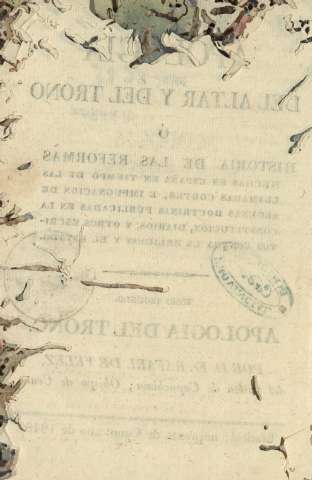 APOLOGÍA
DEL ALTAR Y DEL TRONO
Ó
HISTORIA DE LAS REFORMAS
HECHAS EN ESPAÑA EN TIEMPO DE LAS
LLAMADAS CORTES, É IMPUGNACION DE
ALGUNAS DOCTRINAS PUBLICADAS EN LA
CONSTITUCION, DIARIOS, Y OTROS ESCRI-
TOS CONTRA LA RELIGION Y EL ESTADO.
TOMO SEGUNDO.
APOLOGIA DEL TRONO.
POR D. F. RAFAEL DE VELEZ
del Orden de Capuchinos, Obispo de Ceuta.
Madrid, imprenta de